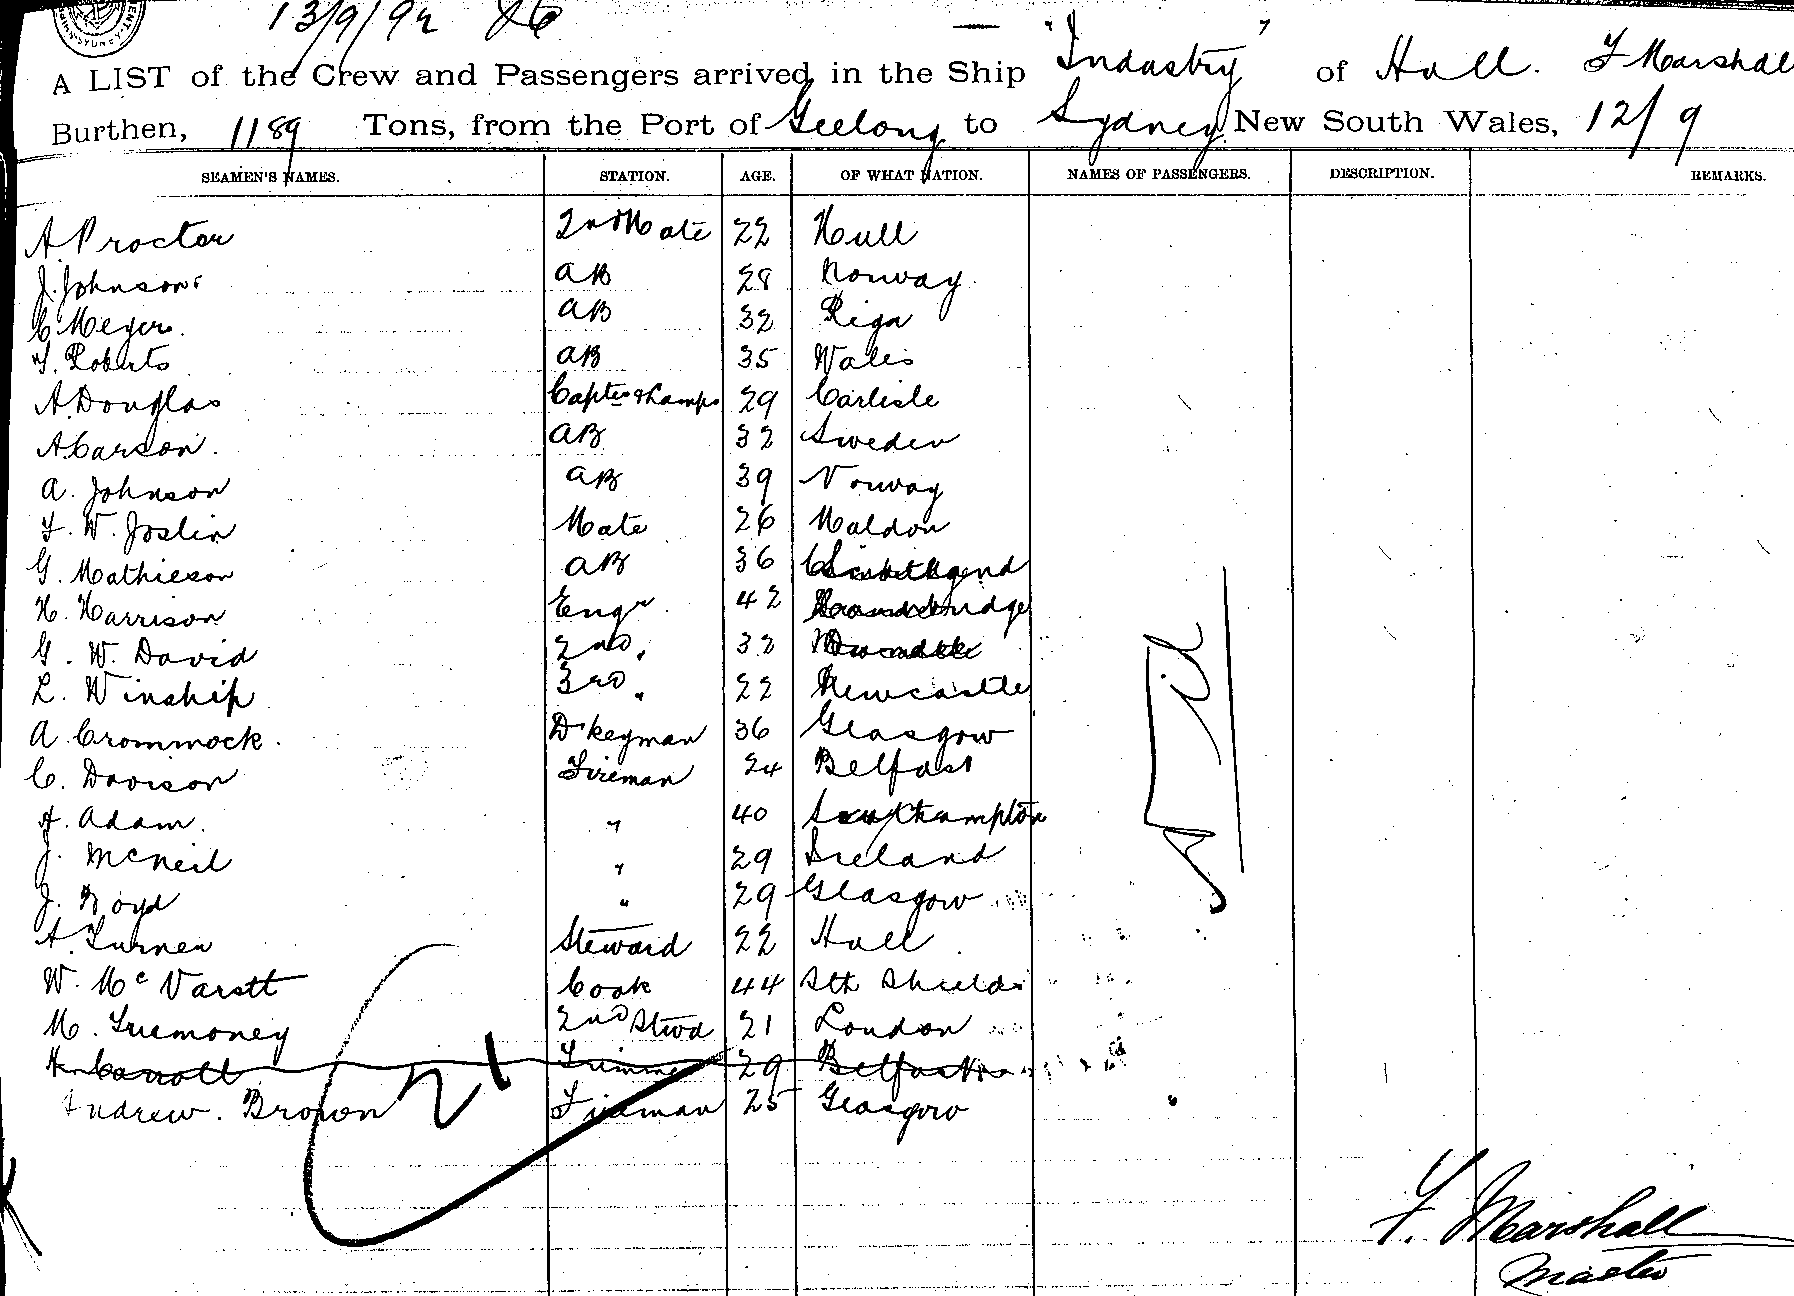 13/9/92
A LIST of the Crew and Passengers arrived in the Ship "Industry" of Hull. F Marshall
Burthen, 1189 Tons, from the Port of Geelong to Sydney New South Wales, 12/9
SEAMEN'S NAMES. STATION. AGE. OF WHAT NATION. NAMES OF PASSENGERS. DESCRIPTION. REMARKS.
A. Proctor 2nd Mate 22 Hull
J. Johnson AB 28 Norway
C. Meyers AB 32 Riga
F. Roberts AB 35 Wales
A. Douglas & Lamps 29 Carlisle
A. Carson. AB 32 Sweden
A. Johnson AB 39 Norway
F. W. Joslin Mate 26 Maldon
G. Mathieson AB 36
H. Harrison Engr 42
G. W. David 2nd " 32
L. Winship 3rd " 22 Newcastle
A. Crommock. D'keyman 36 Glasgow
C. Davison Fireman 24 Belfast
A. Adam. " 40 Southampton
J. McNeil " 29 Ireland
J. Boyd " 29 Glasgow
A. Turner Steward 22 Hull
W. Mc Cook 44 Sth Shields
M. Stwd 21 London
Carroll Trimmer 29 Belfast
Andrew. Brown Fireman 25 Glasgow
21
Nil
F. Marshall
Master